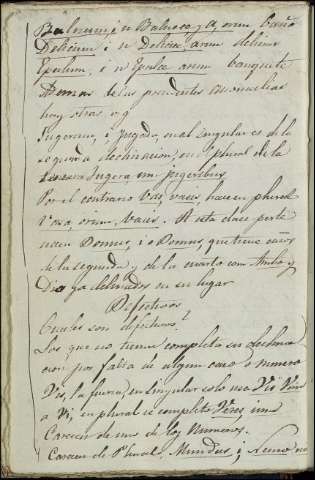 Balneum, i n Balnea, arum baño
Delicium i n Deliciæ, arum delicia
Epulum, i n Epulæ arum banquete
Ademas de las precedentes anomalias
hay otras, v g
Jugerum, i, Jugada, en al singular es de la
segunda declinacion, en el plural de la
tercera Jugera um jugeribus
Por el contrario Vas, vasis hace en plural
Vasa, orum, vasis. A esta clase perte
necen Domus, i o Domus, que tiene casos
de la segunda y de la cuarta con Ambo y
Duo ya declinados en su lugar
Defectivos
Cuales son defectivos?
Los que no tienen completa su declina
cion por falta de algun caso o numero
Vis, la fuerza, en singular solo usa Vis Vim
a Vi, en plural es completo Vires, ium
Carecen de uno de los Numeros.
Carecen de Plural, Mundus, i; Nemo